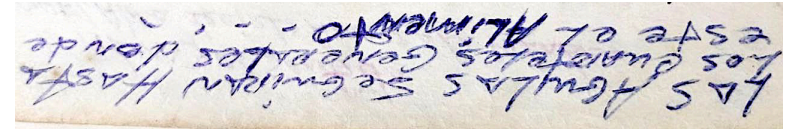 LAS AGUILAS SEGUIRAN HASTA
LOS CUARTELES GENERALES dónde
este el ALIMENTO